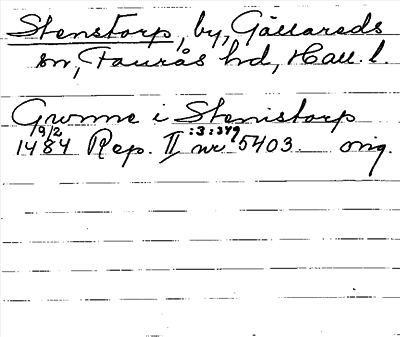 Stenstorp, by, Gällareds
sn, Faurås hd, Hall. l.
Gunne i Stenistorp
9/2 :3:379
1484 Rep. II nr 5403. orig.